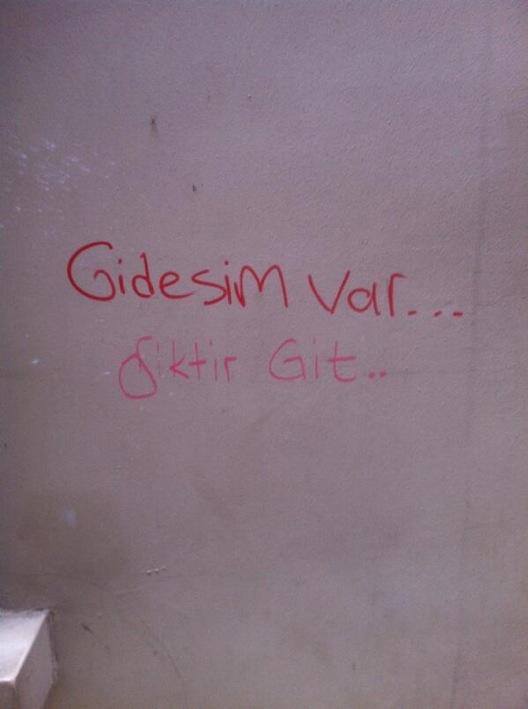 Gidesim var...
Siktir Git..